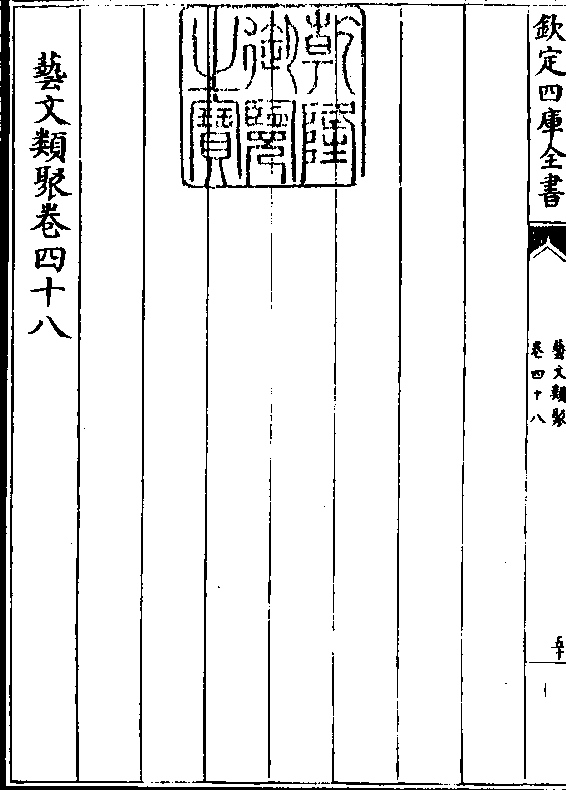 欽定四庫全書
藝文類聚
卷四十八
五十
乾隆
御覽
之寶
藝文類聚卷四十八